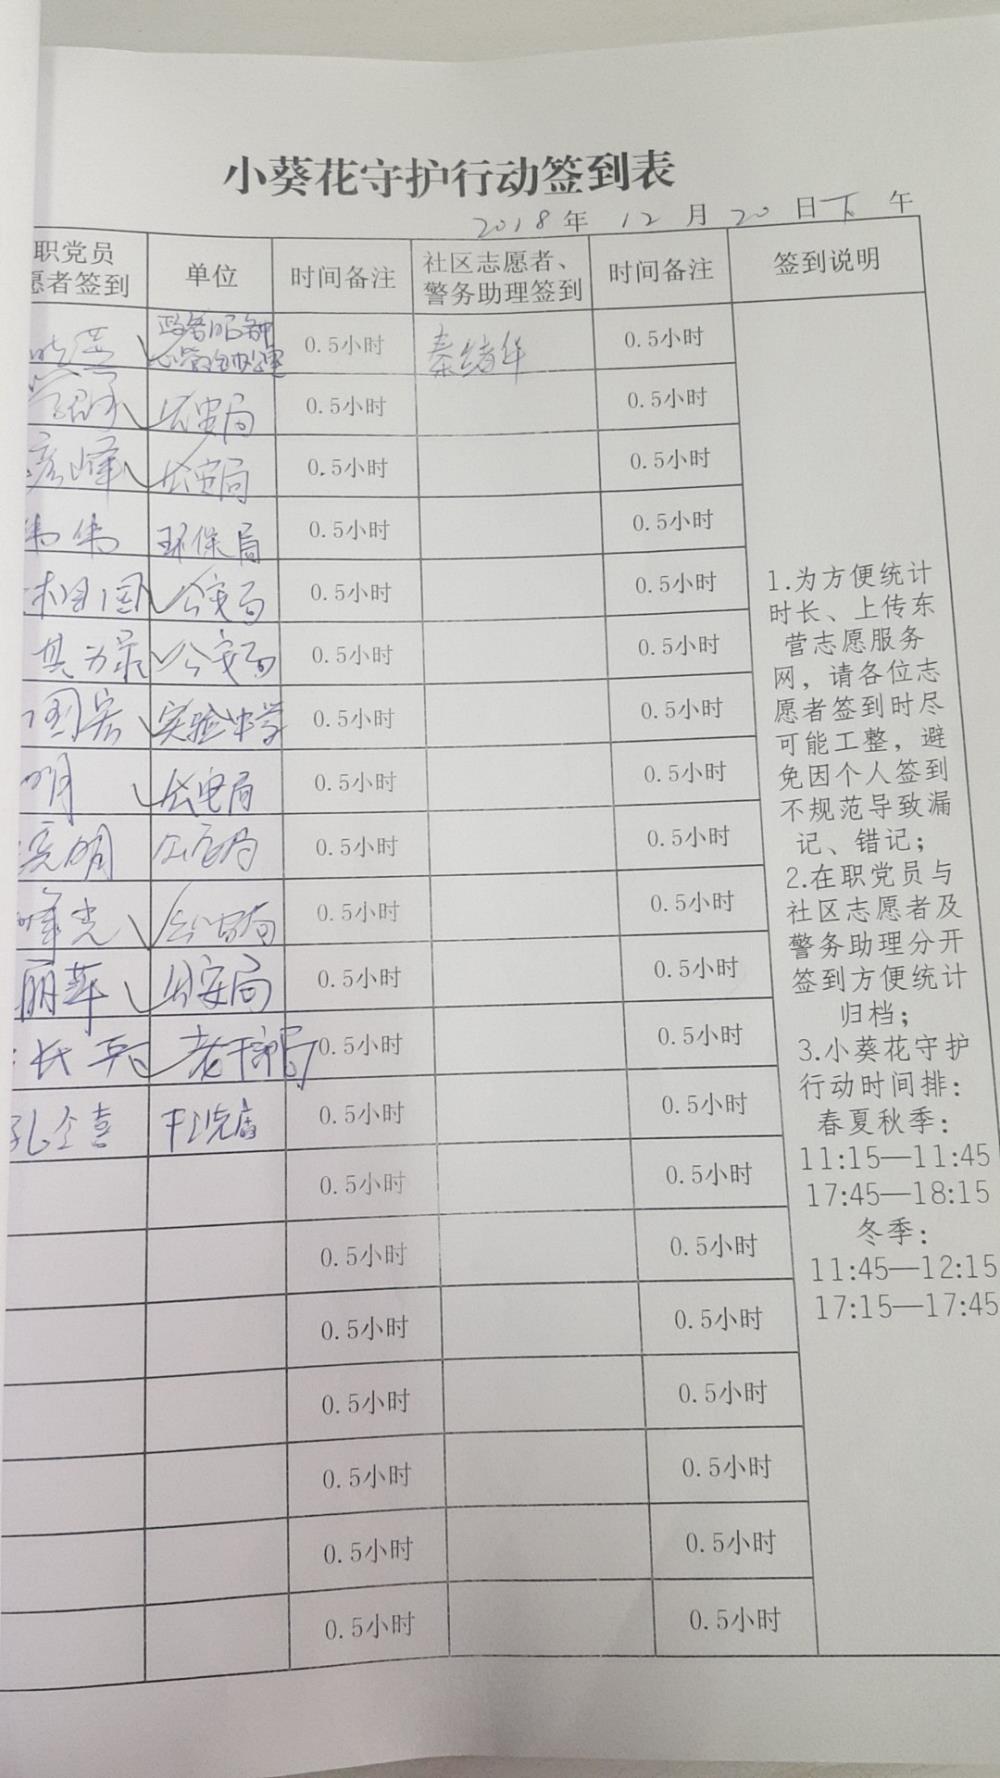 小葵花守护行动签到表
2018年 12月 20日下午
职党员 单位 时间备注 社区志愿者、 时间备注 签到说明
愿者签到 警务助理签到
0.5小时 秦绪华 0.5小时
0.5小时 0.5小时
彦峰 0.5小时 0.5小时
伟 环保局 0.5小时 0.5小时
公安局 0.5小时 0.5小时
公安局 0.5小时 0.5小时
国宏 实验中学 0.5小时 0.5小时
明 0.5小时 0.5小时
亮明 0.5小时 0.5小时
峰光 0.5小时 0.5小时
丽萍 公安局 0.5小时 0.5小时
长兵 老干部局 0.5小时 0.5小时
孔全喜 0.5小时 0.5小时
0.5小时 0.5小时
0.5小时 0.5小时
0.5小时 0.5小时
0.5小时 0.5小时
0.5小时 0.5小时
0.5小时 0.5小时
0.5小时 0.5小时
1.为方便统计
时长、上传东
营志愿服务
网，请各位志
愿者签到时尽
可能工整，避
免因个人签到
不规范导致漏
记、错记；
2.在职党员与
社区志愿者及
警务助理分开
签到方便统计
归档；
3.小葵花守护
行动时间排：
春夏秋季：
11:15—11:45
17:45—18:15
冬季：
11:45—12:15
17:15—17:45